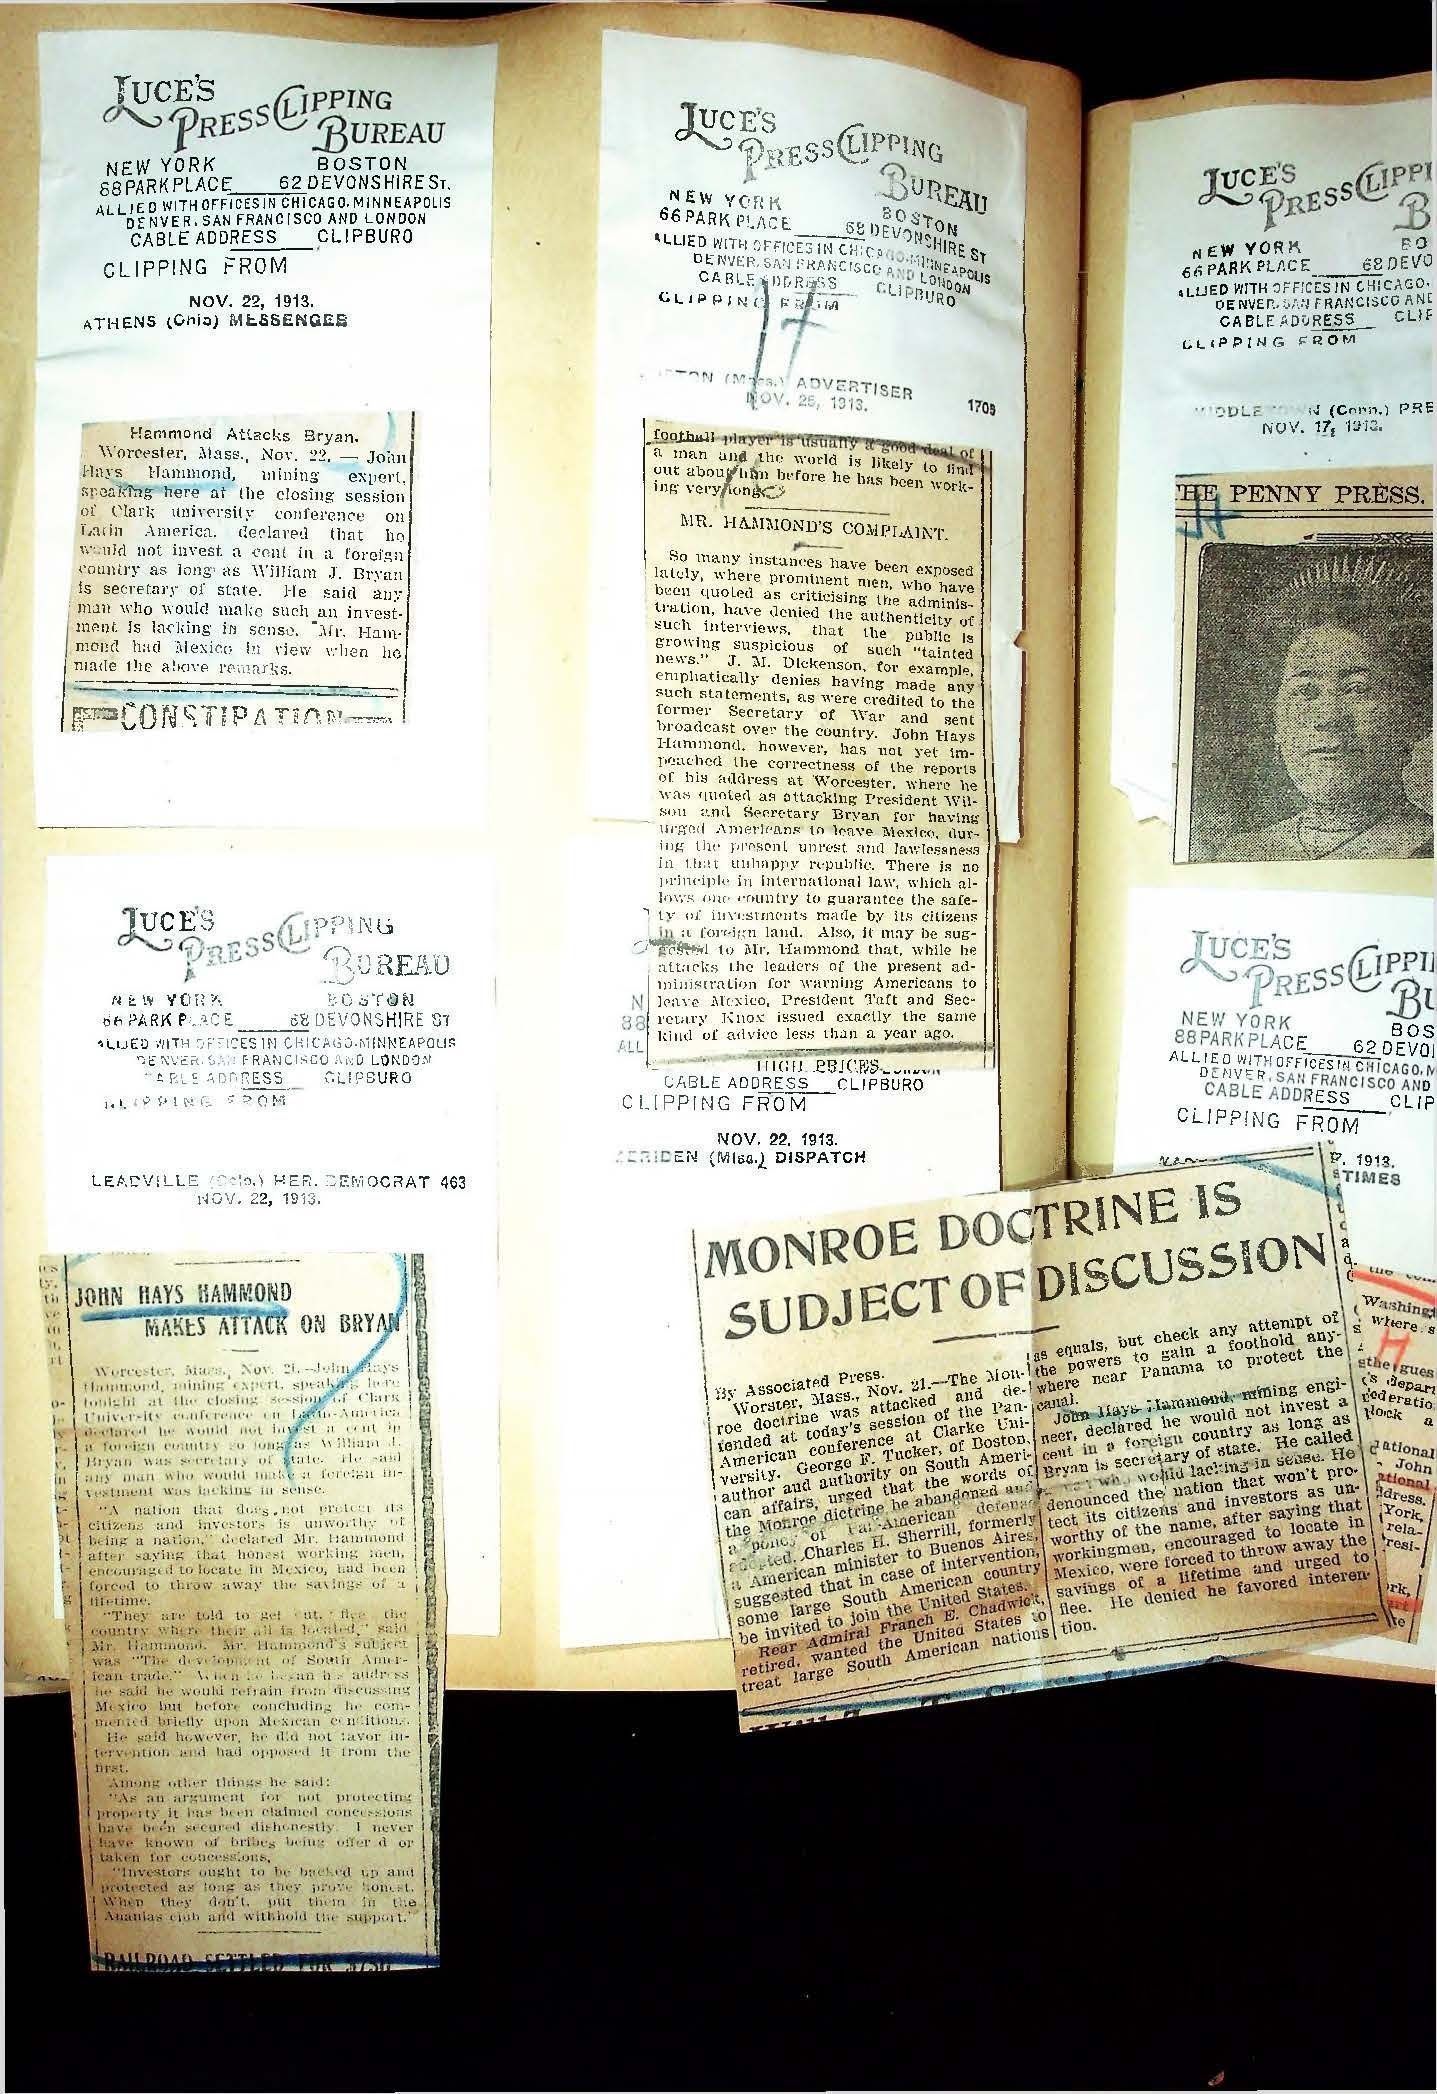 LUCE'S
PRESS CLIPPING
BUREAU
NEW YORK BOSTON
88 PARK PLACE 62 DEVONSHIRE ST.
ALLIED WITH OFFICES IN CHICAGO. MINNEAPOLIS
DENVER. SAN FRANCISCO AND LONDON
CABLE ADDRESS CLIPBURO
CLIPPING FROM
NOV. 22, 1913.
ATHENS (Ohio) MESSENGER
Hammond Attacks Bryan.
Worcester, Mass., Nov. 22. — John
Hays Hammond, mining expert,
speaking here at the closing session
of Clark university conference on
Latin America, declared that he
would not invest a cent in a foreign
country as long as William J. Bryan
is secretary of state. He said any
man who would make such an invest-
ment is lacking in sense. Mr. Ham-
mond had Mexico in view when he
made the above remarks.
CONSTIPATION
LUCE'S
PRESS CLIPPING
BUREAU
NEW YORK BOSTON
66 PARK PLACE 68 DEVONSHIRE ST
ALLIED WITH OFFICES IN CHICAGO. MINNEAPOLIS
DENVER. SAN FRANCISCO AND LONDON
CABLE ADDRESS CLIPBURO
CLIPPING FROM
LEADVILLE (Colo.) HER. DEMOCRAT 463
NOV. 22, 1913.
JOHN HAYS HAMMOND
MAKES ATTACK ON BRYAN
Worcester, Mass., Nov. 21.—John Hays
Hammond, mining expert, speaking here
tonight at the closing session of Clark
University conference on Latin-America
declared he would not invest a cent in
a foreign country so long as William J.
Bryan was secretary of state. He said
any man who would make a foreign in-
vestment was lacking in sense.
"A nation that does not protect its
citizens and investors is unworthy of
being a nation," declared Mr. Hammond
after saying that honest working men,
encouraged to locate in Mexico, had been
forced to throw away the savings of a
lifetime.
"They are told to get out, flee the
country where their all is located," said
Mr. Hammond. Mr. Hammond's subject
was "The development of South Amer-
ican trade." When he began his address
he said he would refrain from discussing
Mexico but before concluding he com-
mented briefly upon Mexican conditions.
He said however, he did not favor in-
tervention and had opposed it from the
first.
Among other things he said:
"As an argument for not protecting
property it has been claimed concessions
have been secured dishonestly. I never
have known of bribes being offer d or
taken for concessions.
"Investors ought to be backed up and
protected as long as they prove honest.
When they don't, put them in the
Ananias club and withhold the support."
RAILROAD SETTLED FOR $750
LUCE'S
PRESS CLIPPING
BUREAU
NEW YORK BOSTON
66 PARK PLACE 68 DEVONSHIRE ST
ALLIED WITH OFFICES IN CHICAGO. MINNEAPOLIS
DENVER. SAN FRANCISCO AND LONDON
CABLE ADDRESS CLIPBURO
CLIPPING FROM
TON (Mass.) ADVERTISER 1709
NOV. 25, 1913.
football player is usually a good deal of
a man and the world is likely to find
out about him before he has been work-
ing very long.
MR. HAMMOND'S COMPLAINT.
So many instances have been exposed
lately, where prominent men, who have
been quoted as criticising the adminis-
tration, have denied the authenticity of
such interviews, that the public is
growing suspicious of such "tainted
news." J. M. Dickenson, for example,
emphatically denies having made any
such statements, as were credited to the
former Secretary of War and sent
broadcast over the country. John Hays
Hammond, however, has not yet im-
peached the correctness of the reports
of his address at Worcester, where he
was quoted as attacking President Wil-
son and Secretary Bryan for having
urged Americans to leave Mexico, dur-
ing the present unrest and lawlessness
in that unhappy republic. There is no
principle in international law, which al-
lows one country to guarantee the safe-
ty of investments made by its citizens
in a foreign land. Also, it may be sug-
gested to Mr. Hammond that, while he
attacks the leaders of the present ad-
ministration for warning Americans to
leave Mexico, President Taft and Sec-
retary Knox issued exactly the same
kind of advice less than a year ago.
HIGH PRICES
N
88
ALL
CABLE ADDRESS CLIPBURO
CLIPPING FROM
NOV. 22, 1913.
MERIDEN (Miss.) DISPATCH
MONROE DOCTRINE IS
SUDJECT OF DISCUSSION
By Associated Press.
Worster, Mass., Nov. 21.—The Mon-
roe doctrine was attacked and de-
fended at today's session of the Pan-
American conference at Clarke Uni-
versity. George F. Tucker, of Boston,
author and authority on South Ameri-
can affairs, urged that the words of
the Monroe dictrine be abandoned and
a policy of Pan-American defense
adopted. Charles H. Sherrill, formerly
American minister to Buenos Aires,
suggested that in case of intervention,
some large South American country
be invited to join the United States.
Rear Admiral Franch E. Chadwick,
retired, wanted the United States to
treat large South American nations
as equals, but check any attempt of
the powers to gain a foothold any-
where near Panama to protect the
canal.
John Hays Hammond, mining engi-
neer, declared he would not invest a
cent in a foreign country as long as
Bryan is secretary of state. He called
who would lacking in sense. He
denounced the nation that won't pro-
tect its citizens and investors as un-
worthy of the name, after saying that
workingmen, encouraged to locate in
Mexico, were forced to throw away the
savings of a lifetime and urged to
flee. He denied he favored interen-
tion.
LUCE'S
PRESS CLIPPI
B
NEW YORK BO
66 PARK PLACE 68 DEVO
ALLIED WITH OFFICES IN CHICAGO.
DENVER. SAN FRANCISCO AND
CABLE ADDRESS CLIP
CLIPPING FROM
MIDDLETOWN (Conn.) PRE
NOV. 17, 1913.
THE PENNY PRESS.
LUCE'S
PRESS CLIPPI
BU
NEW YORK BOS
88 PARK PLACE 62 DEVO
ALLIED WITH OFFICES IN CHICAGO. M
DENVER. SAN FRANCISCO AND
CABLE ADDRESS CLIP
CLIPPING FROM
1913.
TIMES
Washing
where s
H
gues
depart
ederatio
lock a
ational
John
ational
ddress.
York,
rela-
resi-
rk,
te